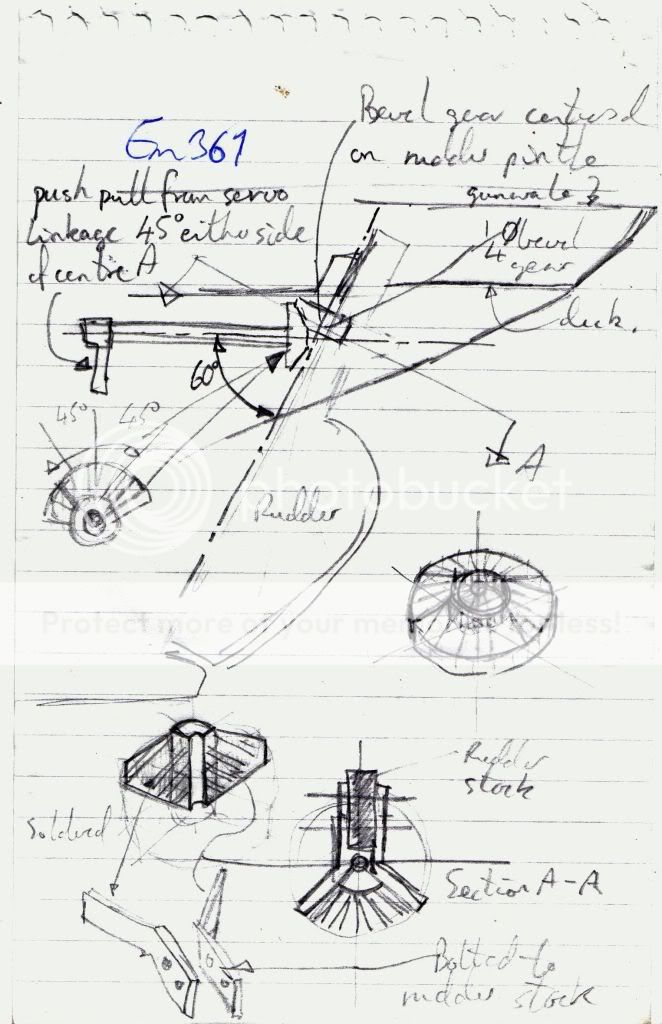 Bevel gear centred
on rudder pintle
Em361
gunwale
push pull from servo
linkage 45° either side
of centre
A
1/4 Ø bevel
gear
deck.
60°
45° 45°
A
Rudder
photobucket
Protect more of your memories for less!
Rudder
stock
Soldered
Section A-A
Bolted to
rudder stock